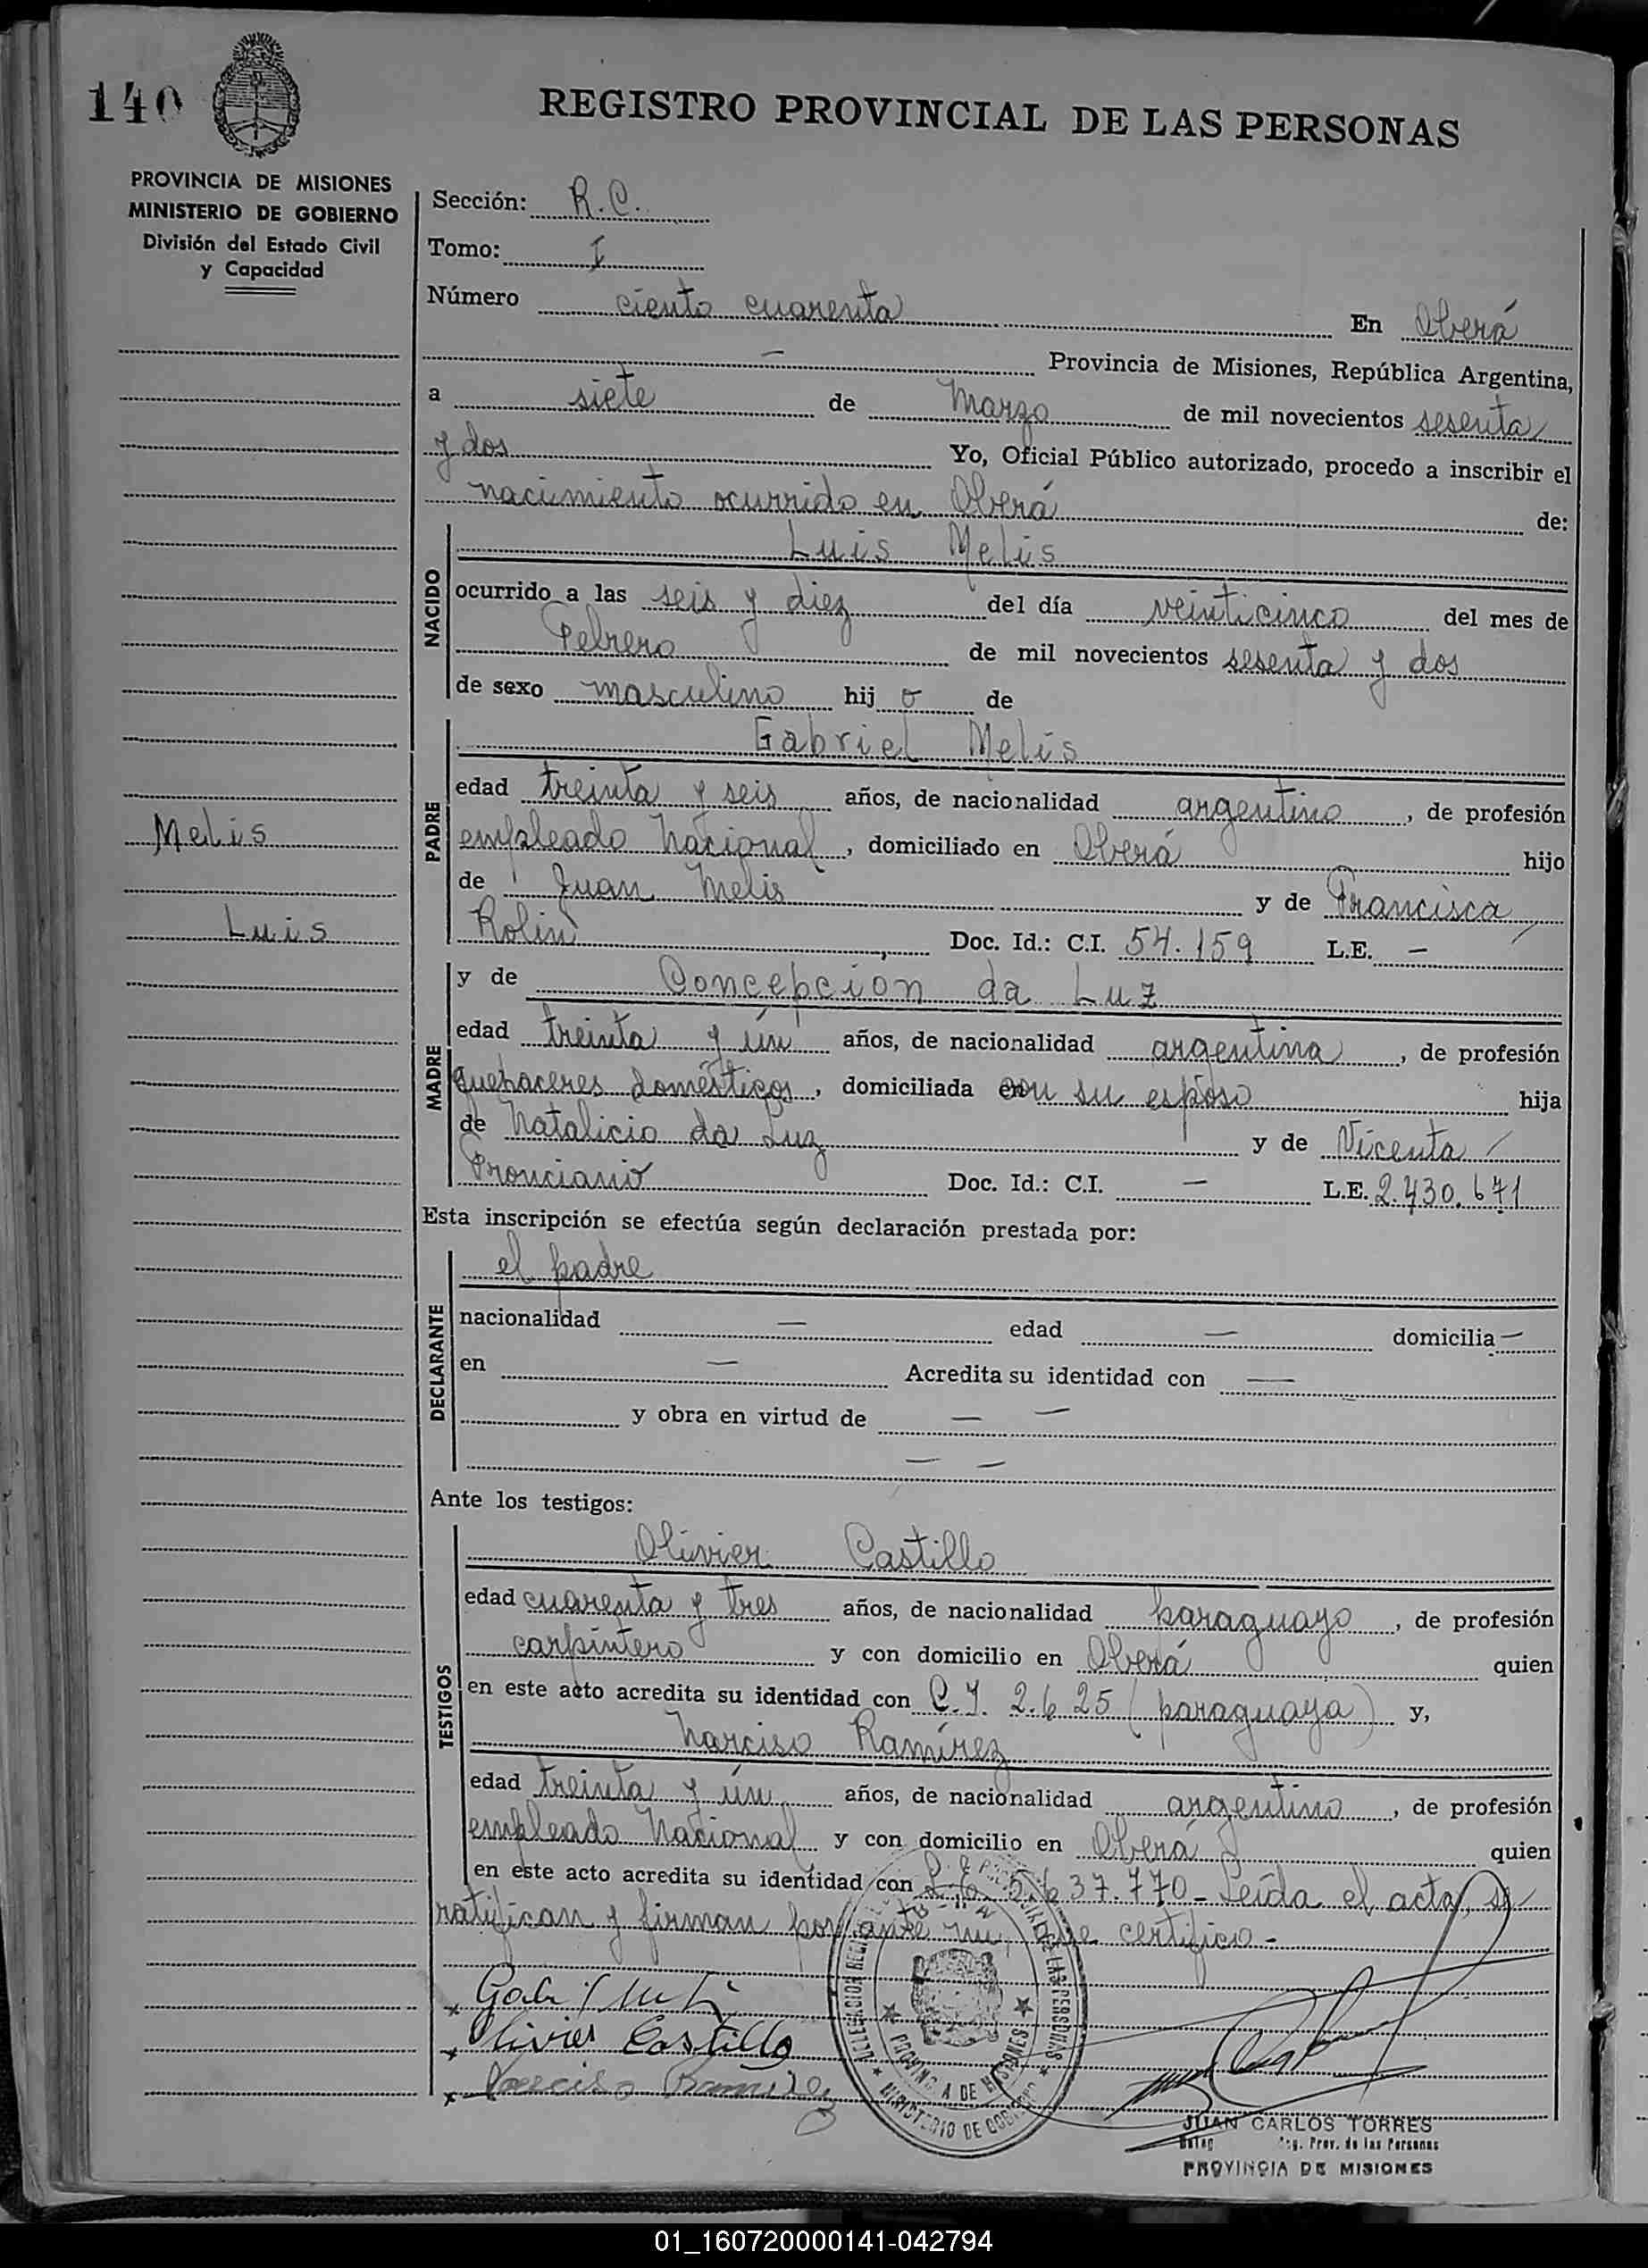 140
REGISTRO PROVINCIAL DE LAS PERSONAS
PROVINCIA DE MISIONES
MINISTERIO DE GOBIERNO
División del Estado Civil
y Capacidad
Sección: R.C.
Tomo: I
Número ciento cuarenta En Oberá
— Provincia de Misiones, República Argentina,
a siete de Marzo de mil novecientos sesenta
y dos Yo, Oficial Público autorizado, procedo a inscribir el
nacimiento ocurrido en Oberá de:
NACIDO
Luis Melis
ocurrido a las seis y diez del día veinticinco del mes de
Febrero de mil novecientos sesenta y dos
de sexo masculino hij o de
PADRE
Gabriel Melis
edad treinta y seis años, de nacionalidad argentino, de profesión
empleado Nacional, domiciliado en Oberá hijo
de Juan Melis y de Francisca
Rolin Doc. Id.: C.I. 54.159 L.E. —
Melis
Luis
MADRE
y de Concepcion da Luz
edad treinta y ún años, de nacionalidad argentina, de profesión
quehaceres domésticos, domiciliada con su esposo hija
de Natalicio da Luz y de Vicenta
Doc. Id.: C.I. — L.E. 2.430.671
Esta inscripción se efectúa según declaración prestada por:
DECLARANTE
el padre
nacionalidad — edad — domicilia —
en — Acredita su identidad con —
y obra en virtud de — —
— —
Ante los testigos:
TESTIGOS
Olivier Castillo
edad cuarenta y tres años, de nacionalidad paraguayo, de profesión
carpintero y con domicilio en Oberá quien
en este acto acredita su identidad con C.I. 2.625 (paraguaya) y,
Narciso Ramírez
edad treinta y ún años, de nacionalidad argentino, de profesión
empleado Nacional y con domicilio en Oberá quien
en este acto acredita su identidad con 5.637.770 - Leída el acta, se
ratifican y firman por ante mi, que certifico -
x
x Olivier Castillo
x Narciso Ramirez
PROVINCIA DE MISIONES
MINISTERIO DE GOBIERNO
JUAN CARLOS TORRES
Prov. de las Personas
PROVINCIA DE MISIONES
01_160720000141-042794